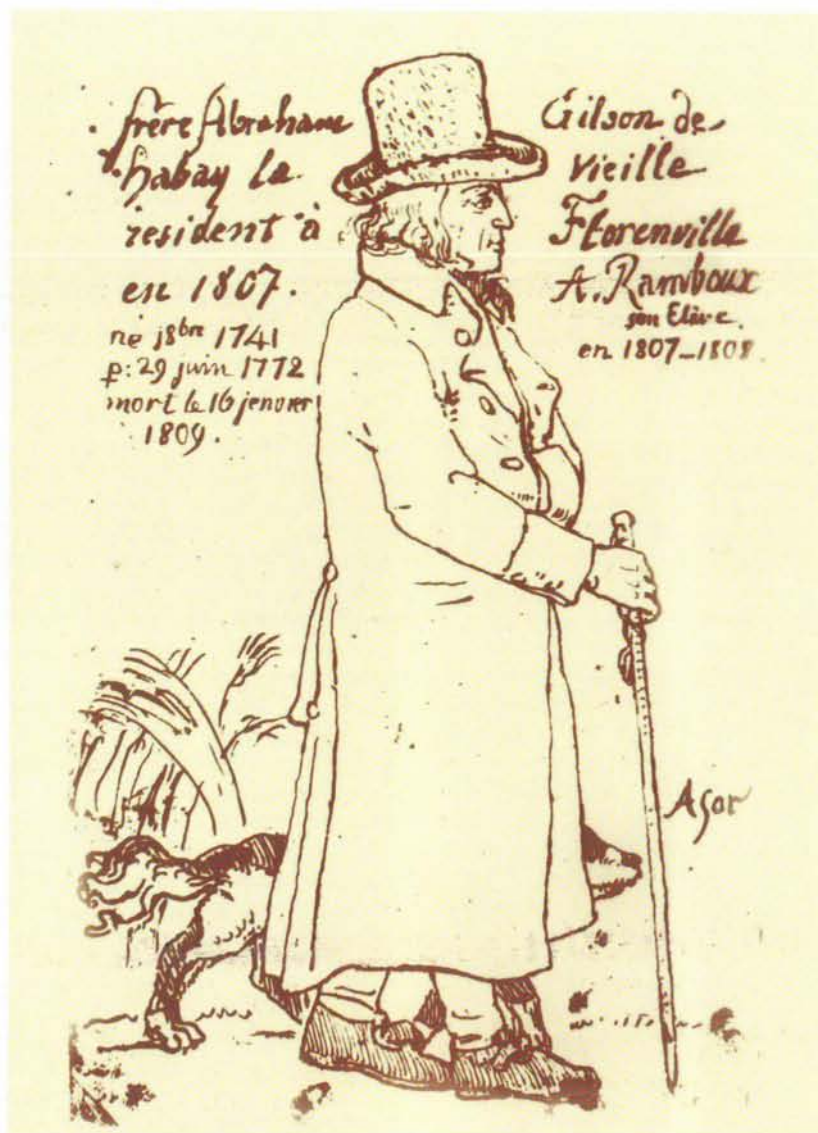 frère Abraham Gilson de
habay la vieille
resident à Florenville
en 1807. A. Ramboux
son Elève.
en 1807-1808
né j8bre 1741
p: 29 juin 1772
mort le 16 jenvier
1809.
Asor